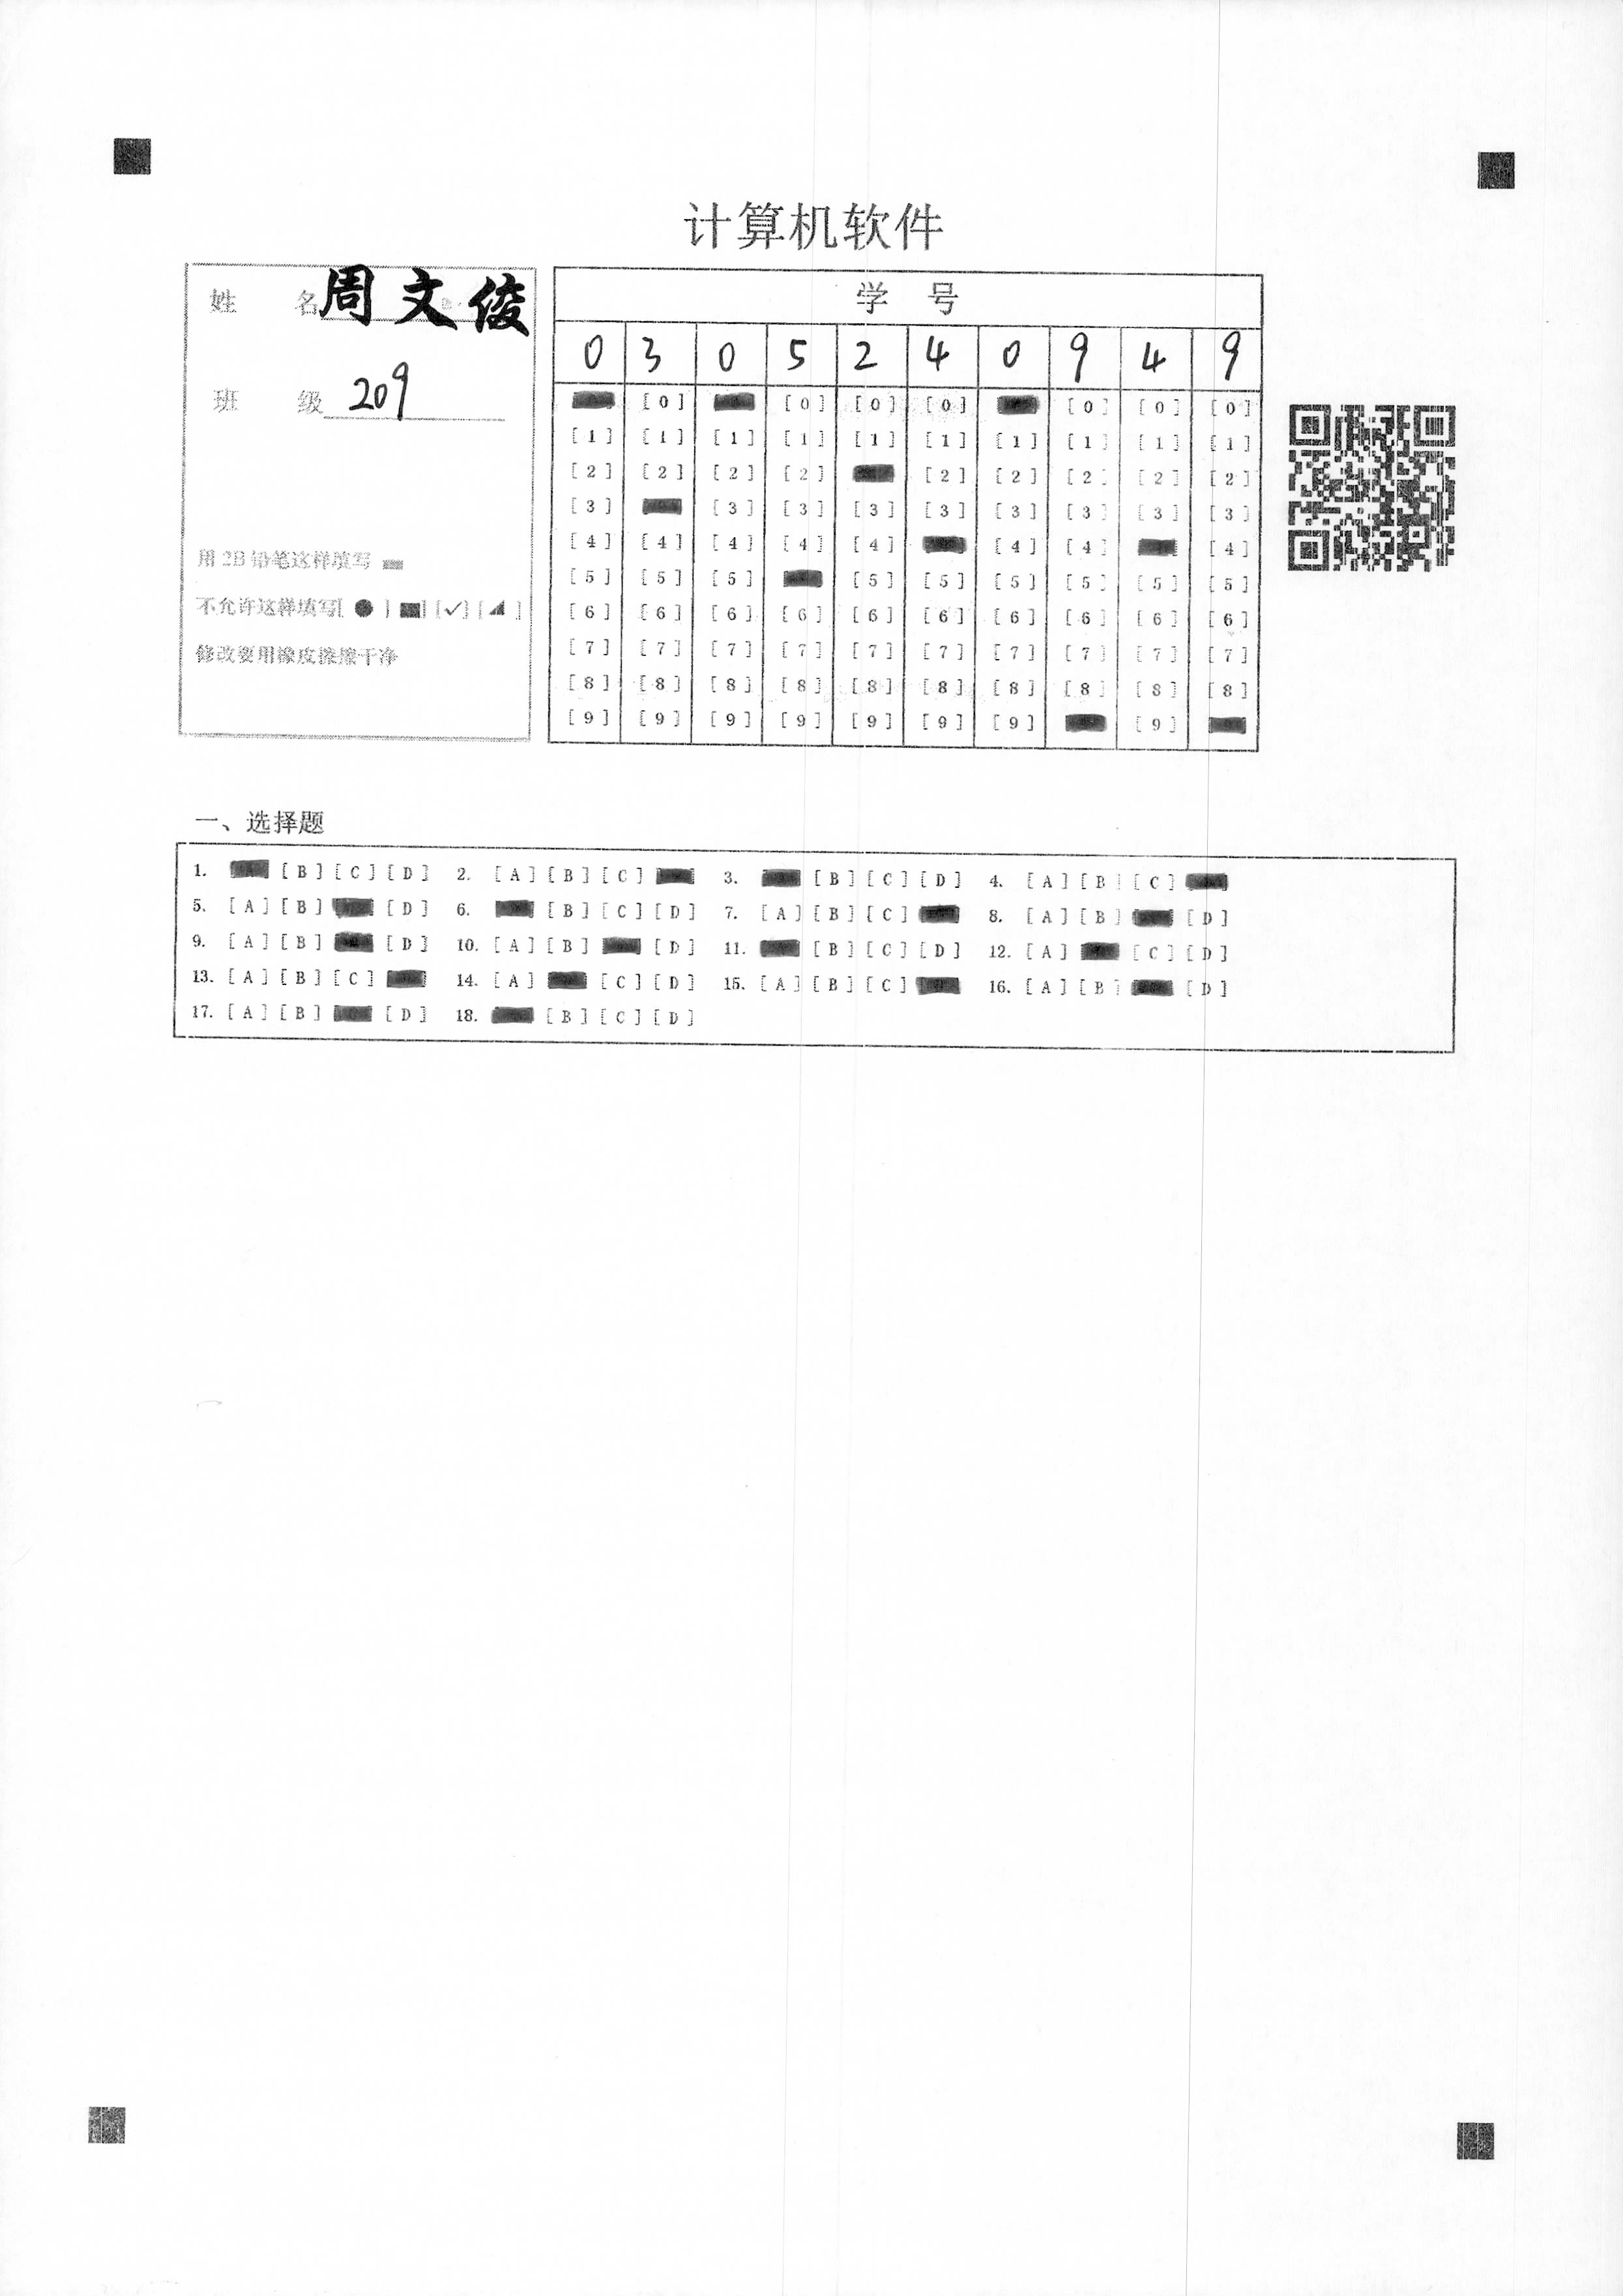 计算机软件
姓 名 周文俊
班 级 209
用 2B 铅笔这样填写
不允许这样填写[ ● ] [■] [✓] [◢ ]
修改要用橡皮擦擦干净
学 号
0 3 0 5 2 4 0 9 4 9
[0] [0] [0] [0] [0] [0] [0]
[1] [1] [1] [1] [1] [1] [1] [1] [1] [1]
[2] [2] [2] [2] [2] [2] [2] [2] [2]
[3] [3] [3] [3] [3] [3] [3] [3] [3]
[4] [4] [4] [4] [4] [4] [4] [4]
[5] [5] [5] [5] [5] [5] [5] [5] [5]
[6] [6] [6] [6] [6] [6] [6] [6] [6] [6]
[7] [7] [7] [7] [7] [7] [7] [7] [7] [7]
[8] [8] [8] [8] [8] [8] [8] [8] [8] [8]
[9] [9] [9] [9] [9] [9] [9] [9]
一、选择题
1. [B] [C] [D] 2. [A] [B] [C] 3. [B] [C] [D] 4. [A] [B] [C]
5. [A] [B] [D] 6. [B] [C] [D] 7. [A] [B] [C] 8. [A] [B] [D]
9. [A] [B] [D] 10. [A] [B] [D] 11. [B] [C] [D] 12. [A] [C] [D]
13. [A] [B] [C] 14. [A] [C] [D] 15. [A] [B] [C] 16. [A] [B] [D]
17. [A] [B] [D] 18. [B] [C] [D]